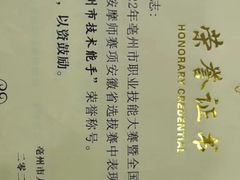 荣誉证书
HONORARY CREDENTIAL
志：
22年亳州市职业技能大赛暨全国
按摩师赛项安徽省选拔赛中表现
州市技术能手”荣誉称号。
，以资鼓励。
亳州市人
二〇二